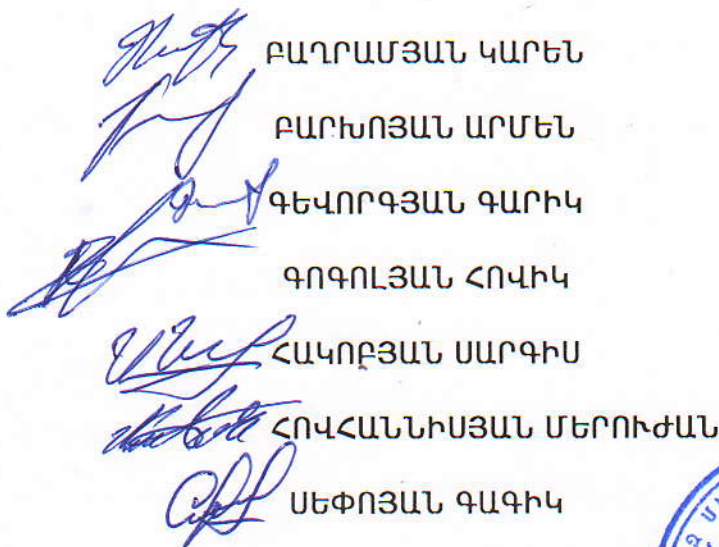 ԲԱՂՐԱՄՅԱՆ ԿԱՐԵՆ
ԲԱՐԽՈՅԱՆ ԱՐՄԵՆ
ԳԵՎՈՐԳՅԱՆ ԳԱՐԻԿ
ԳՈԳՈԼՅԱՆ ՀՈՎԻԿ
ՀԱԿՈԲՅԱՆ ՍԱՐԳԻՍ
ՀՈՎՀԱՆՆԻՍՅԱՆ ՄԵՐՈՒԺԱՆ
ՍԵՓՈՅԱՆ ԳԱԳԻԿ